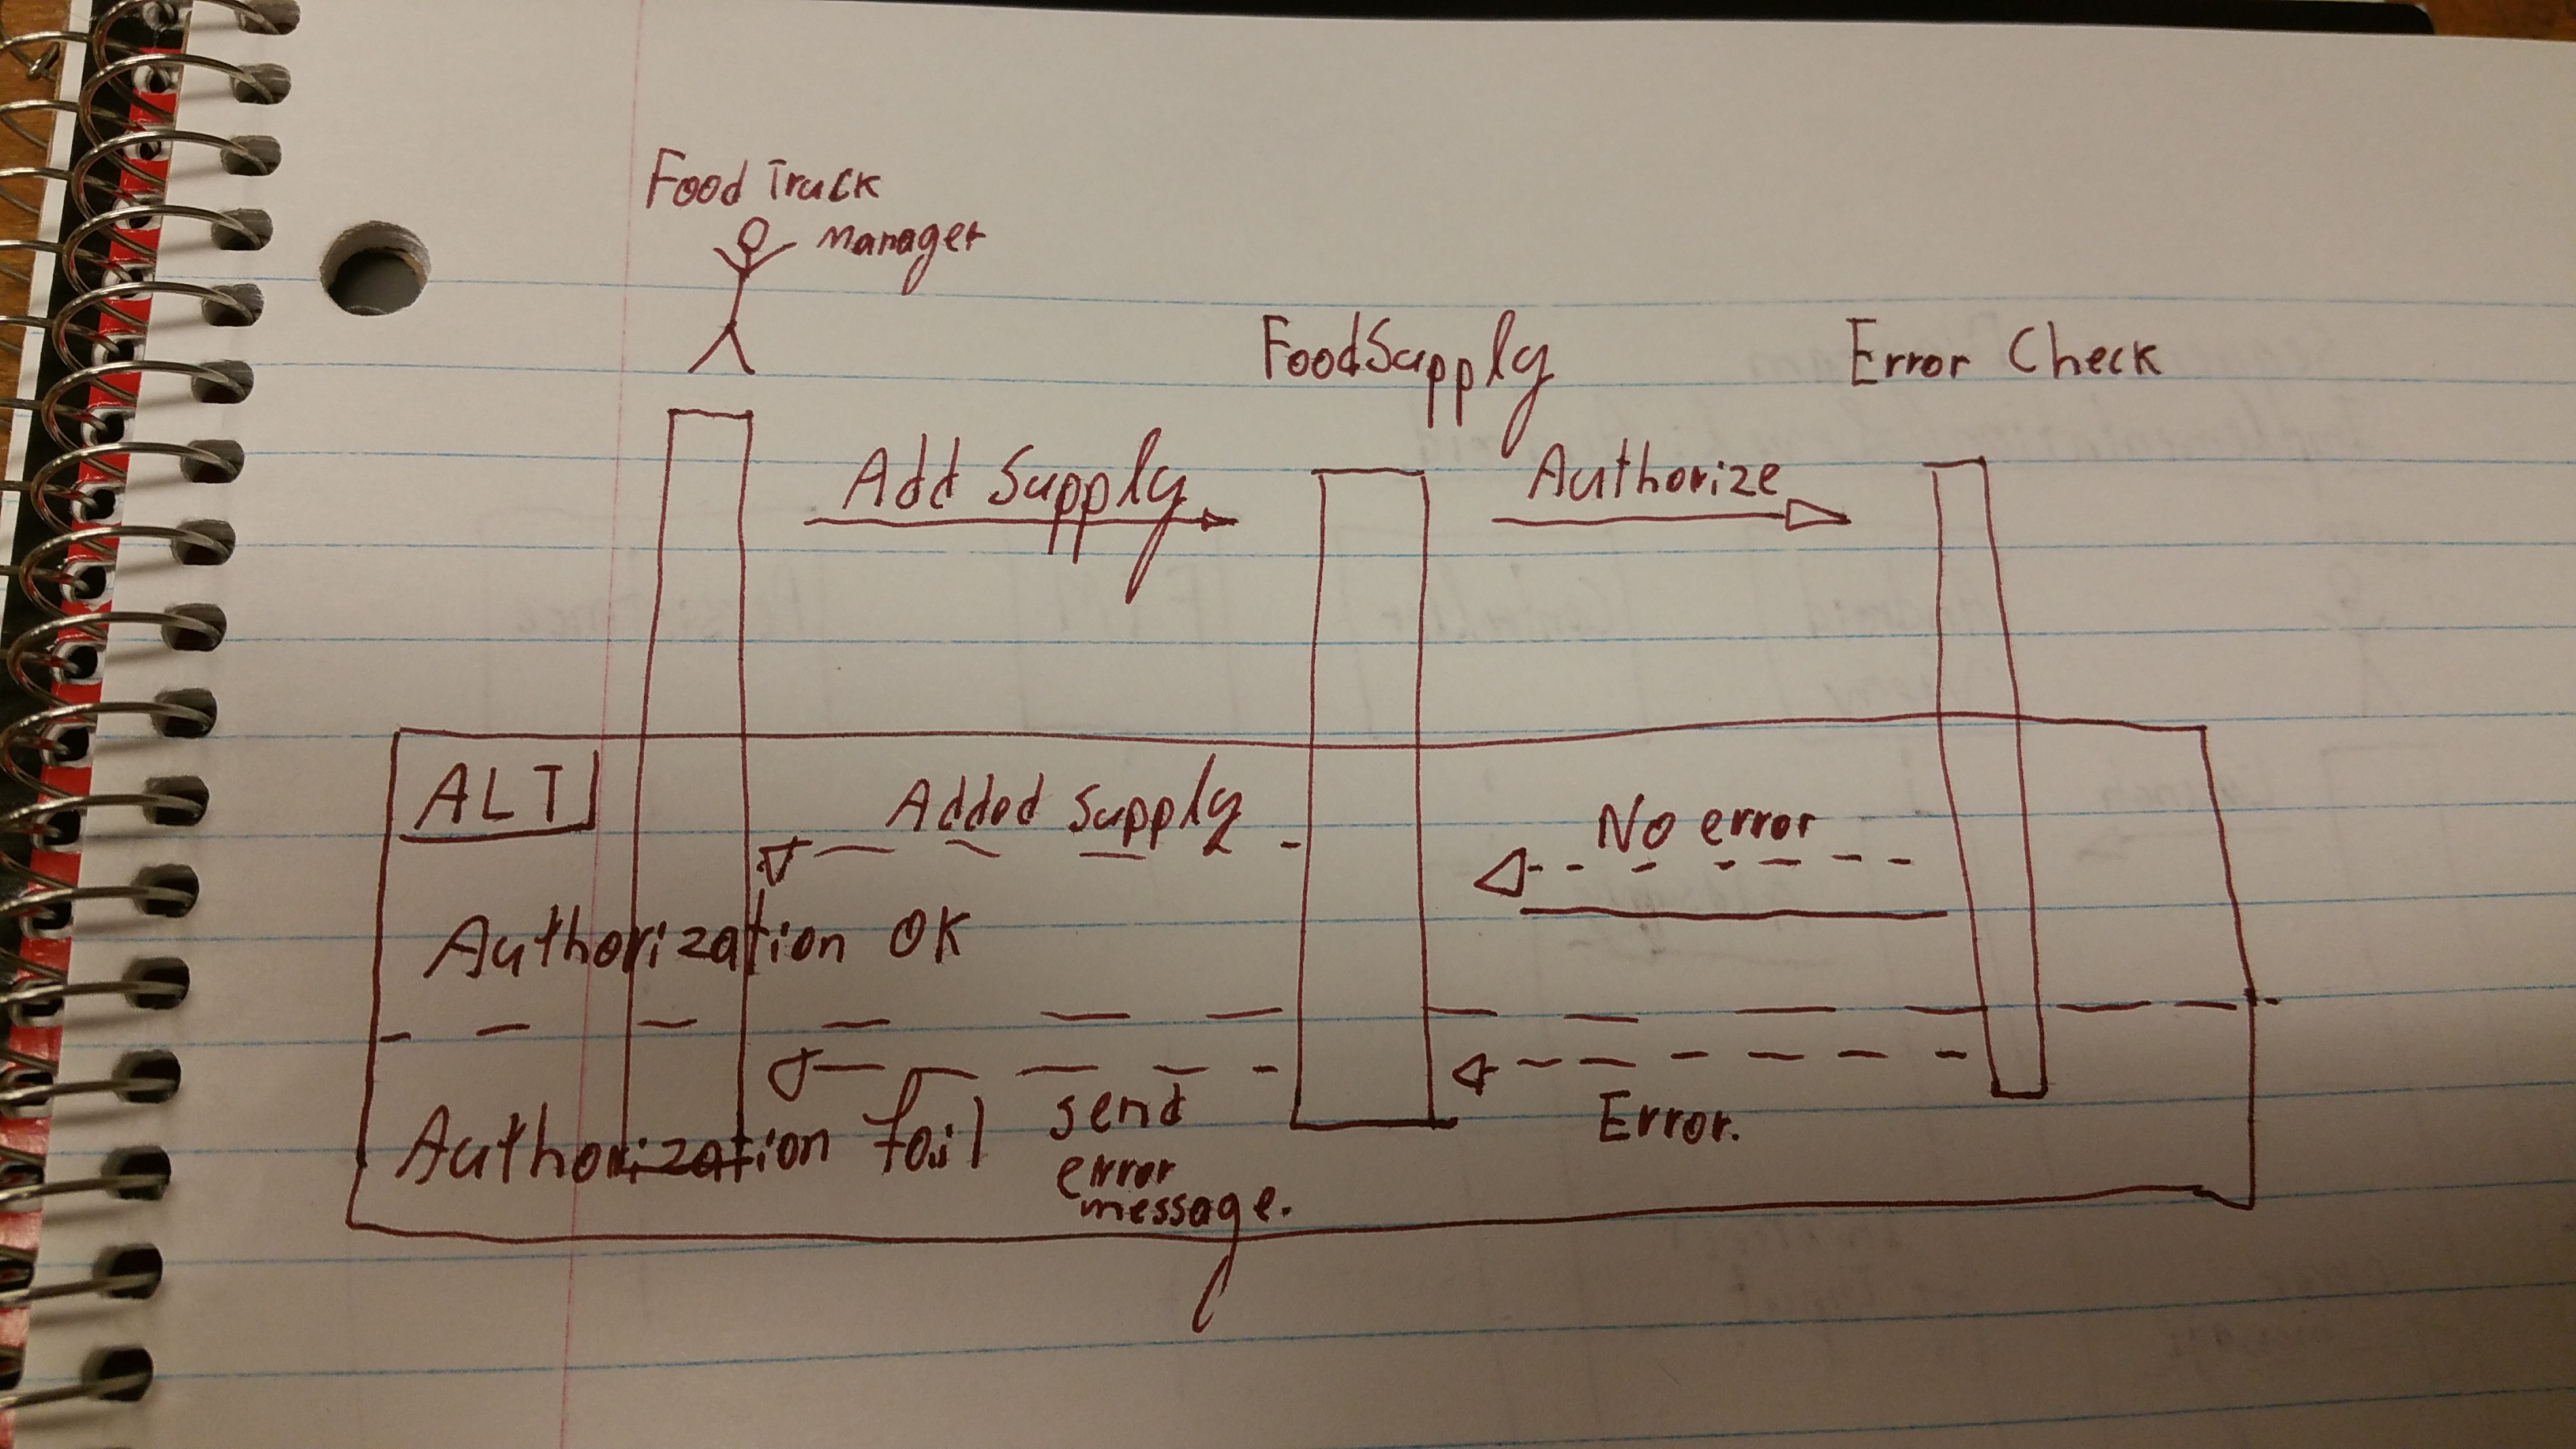 Food Truck
manager
FoodSupply
Error Check
Add Supply
Authorize
ALT
Added Supply
No error
Authorization OK
Authorization fail
send
error
message.
Error.